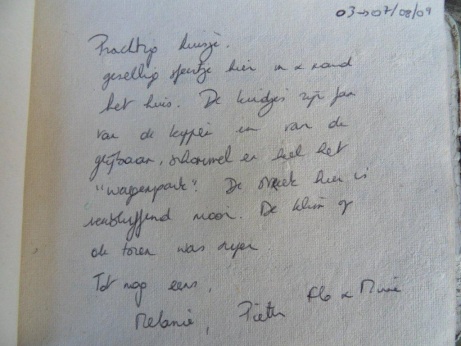 03→07/08/09
Prachtig huisje.
gezellig sfeertje hier in & rond
het huis. De kindjes zijn fan
van de kippen en van de
glijbaan, schommel en heel het
"wagenpark". De streek hier is
verbluffend mooi. De klim op
de toren was
Tot nog eens,
Melanie, Pieter Flo &